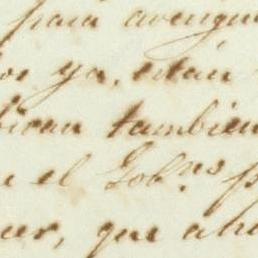 para averigu
os ya, estan
bicar tambien
n el Gob.no p
uer, que aho